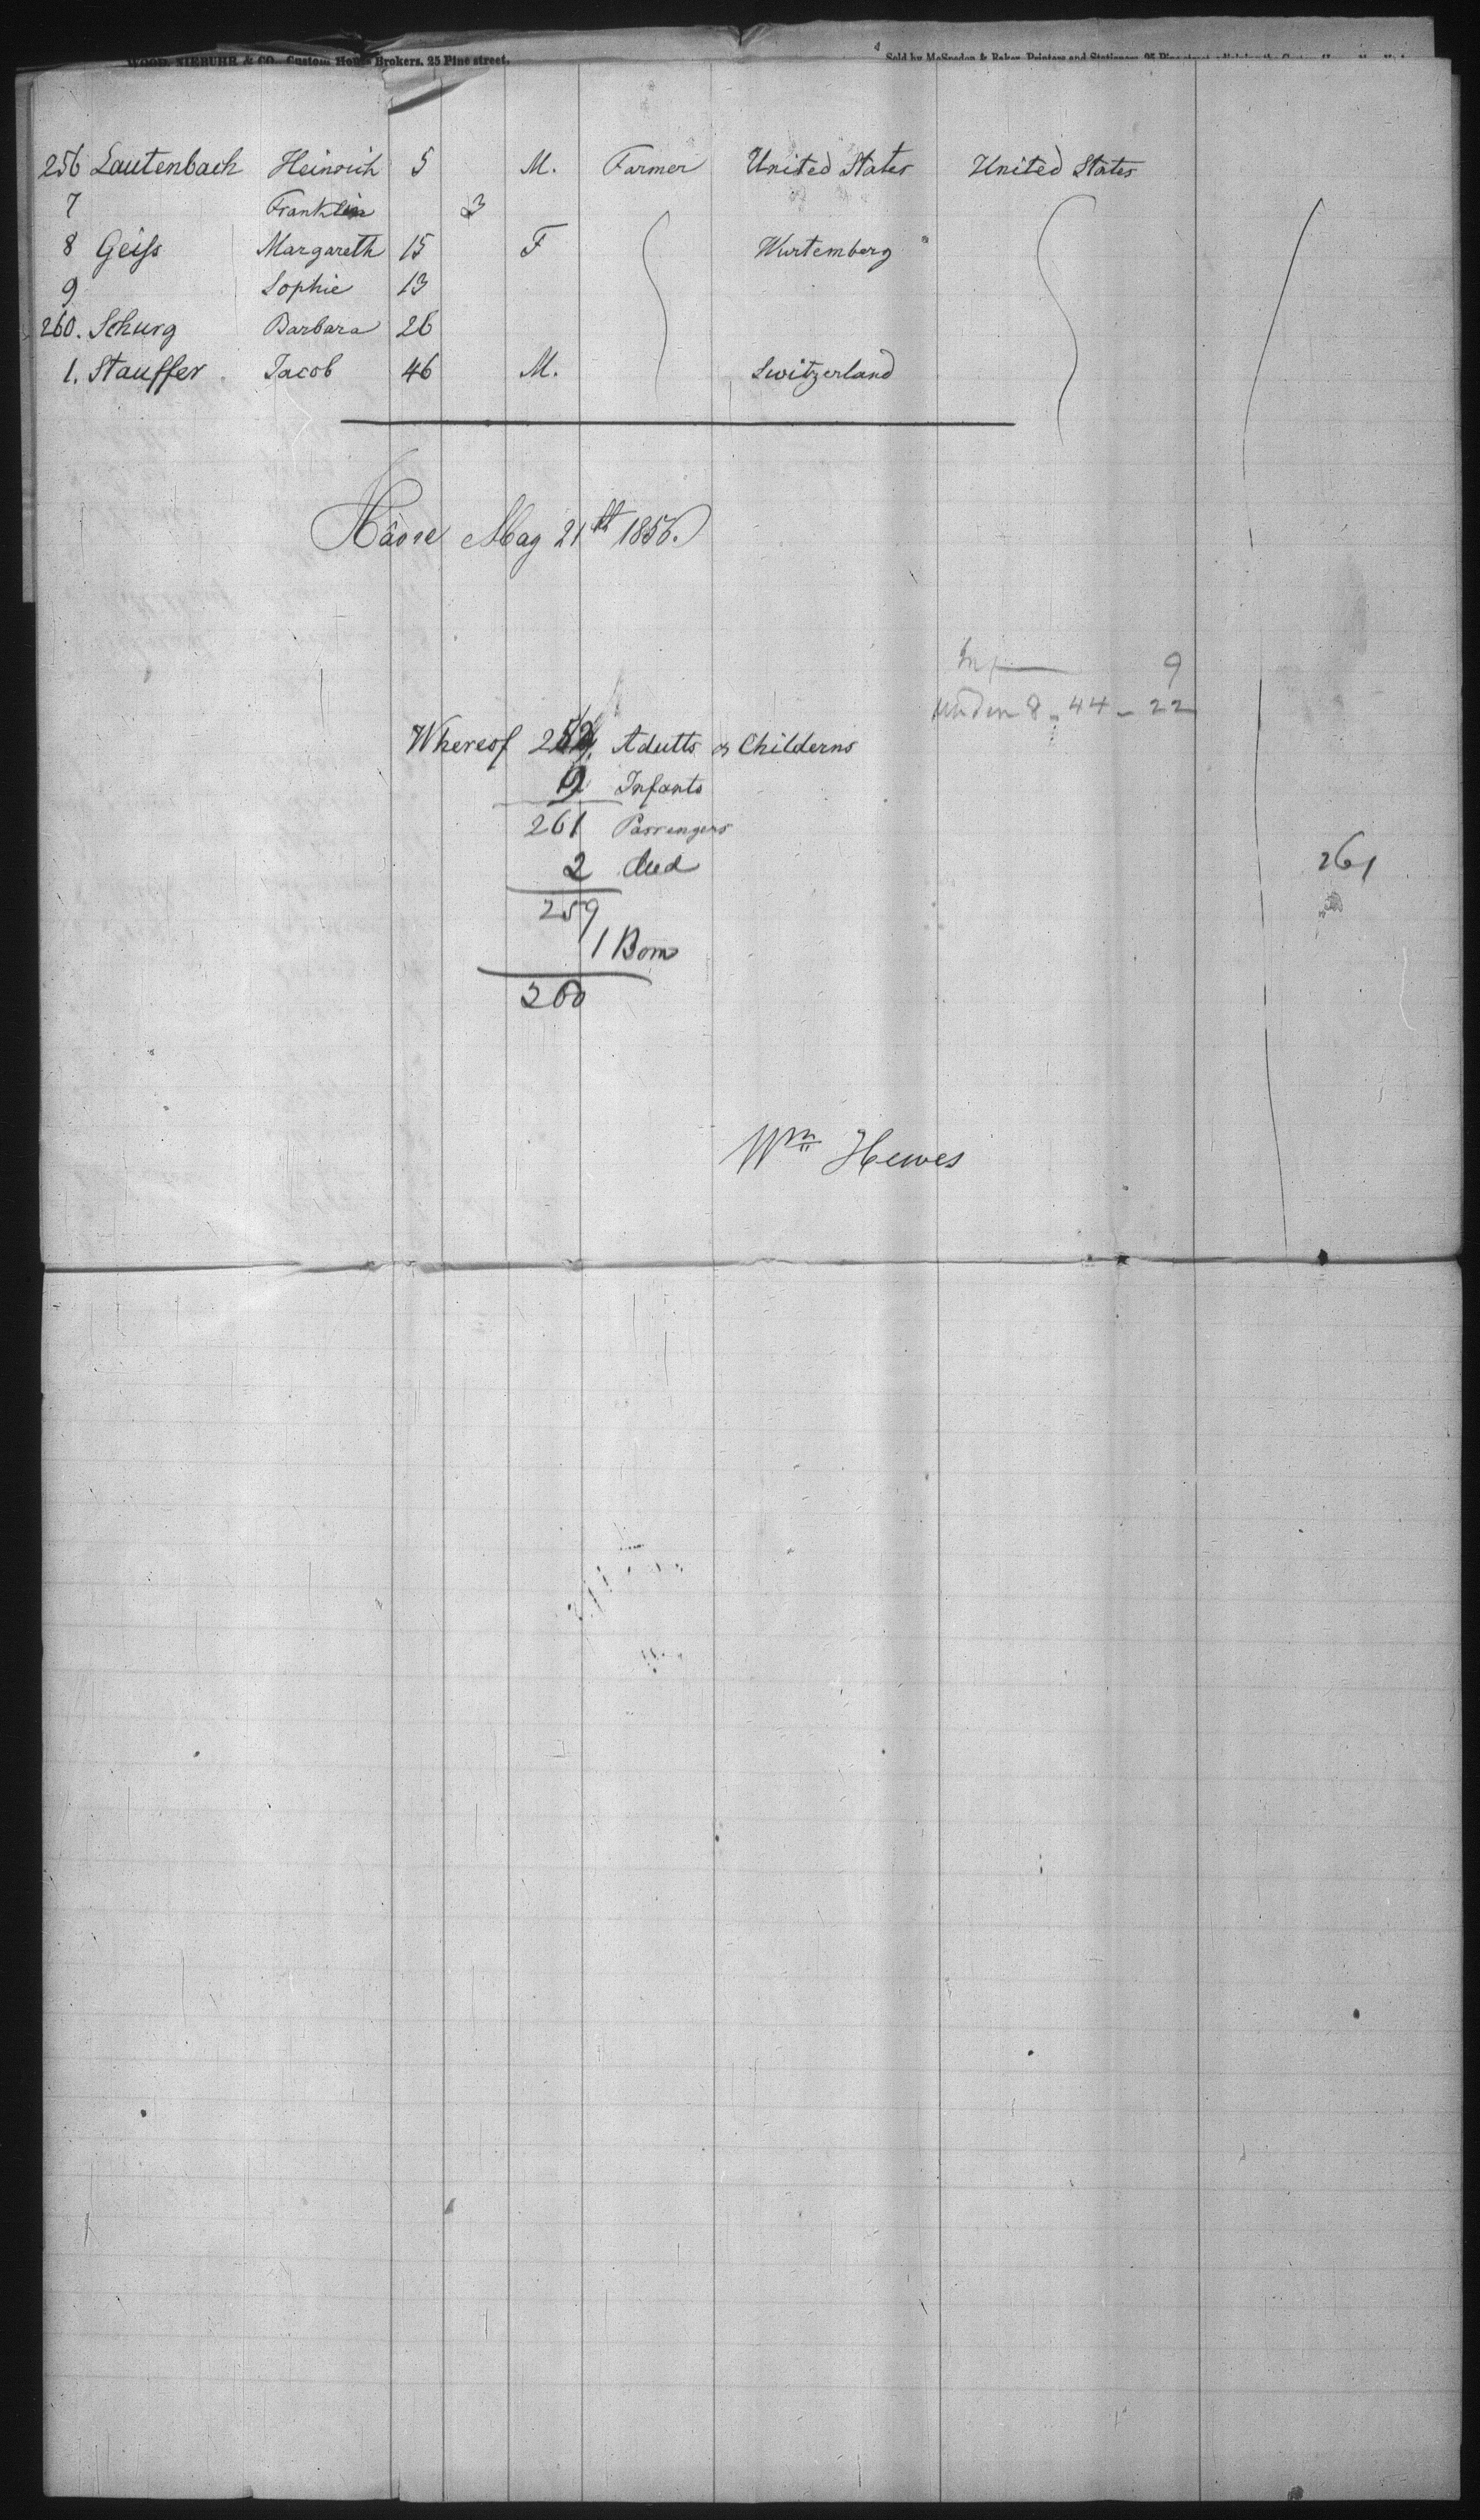 WOOD, NIEBUHR & CO. Custom House Brokers, 25 Pine street.
Sold by McSpedon & Baker, Printers and Stationers, 25 Pine street
256 Lautenbach Heinrich 5 M. Farmer United States United States
7 Franklin 3
8 Geiss Margareth 15 F Wurtemberg
9 Sophie 13
260. Schurg Barbara 26
1. Stauffer Jacob 46 M. Switzerland
Hâvre May 21th 1856.
9
under 8 - 44 - 22
Whereof 252 Adults & Childerns
9 Infants
261 Passengers
2 died
261
259
1 Born
260
Wm Hewes